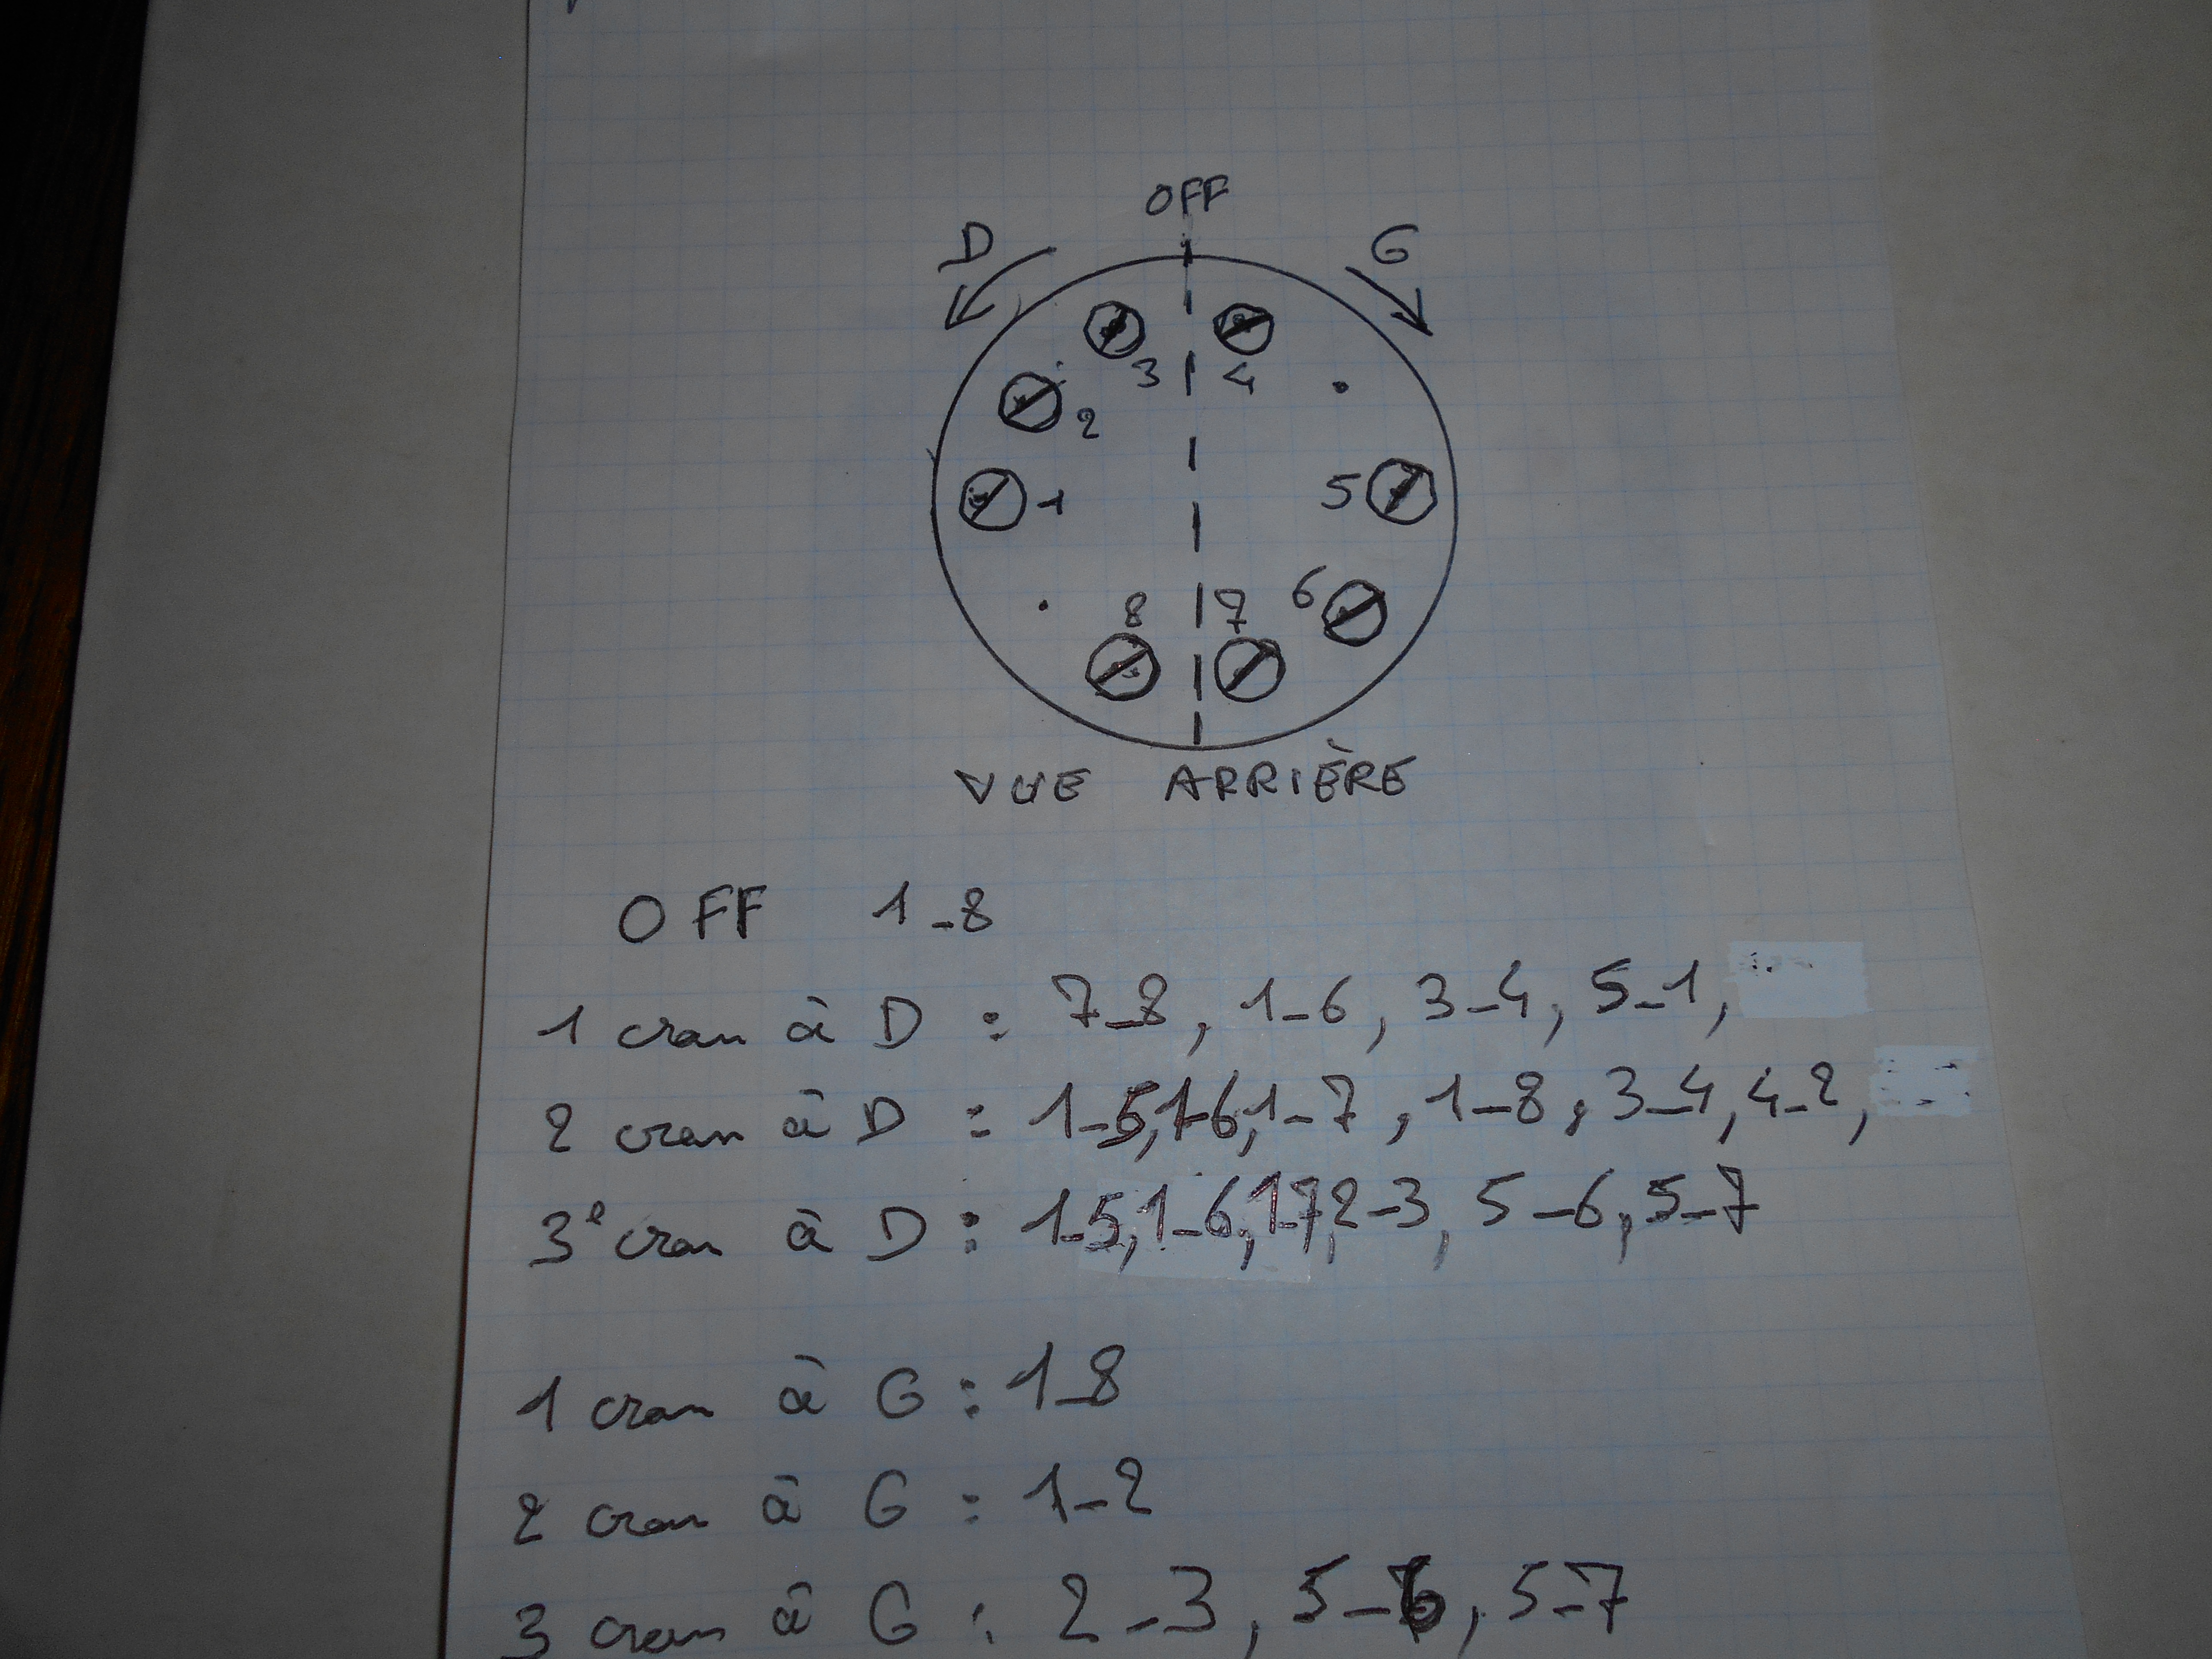 OFF
D G
3 4
2
1 5
6
8 7
VUE ARRIÈRE
OFF 1-8
1 cran à D : 7-8, 1-6, 3-4, 5-1,
2 cran à D : 1-5,1-6,1-7, 1-8, 3-4, 4-2,
3e cran à D : 1-5,1-6,1-7,2-3, 5-6,5-7
1 cran à G : 1-8
2 cran à G : 1-2
3 cran à G : 2-3, 5-6, 5-7